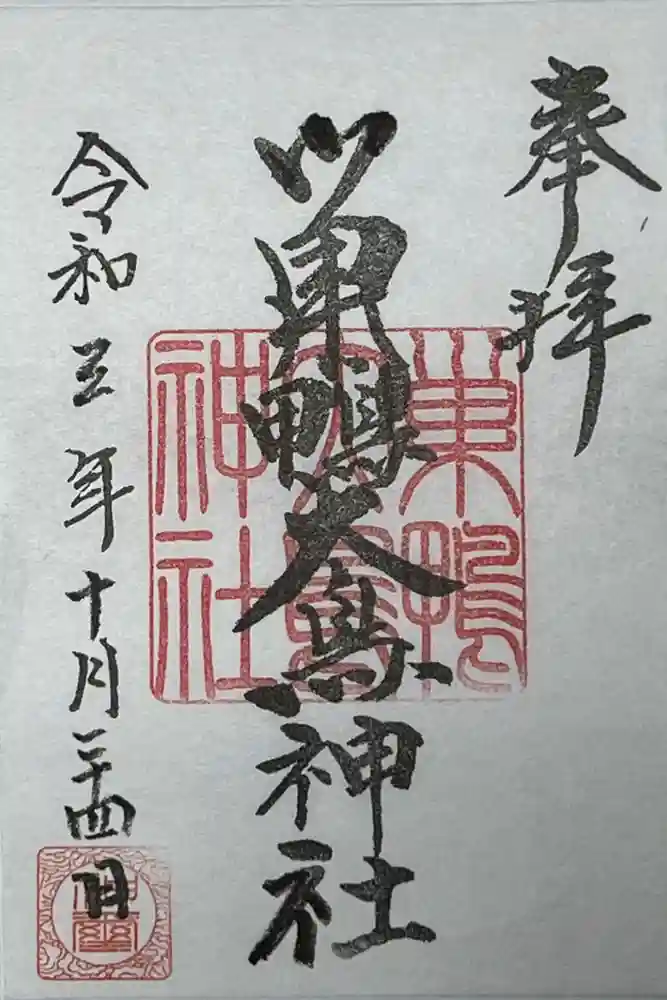 奉拝
巣鴨大鳥神社
巣鴨
大鳥
神社
令和三年十月二十四日